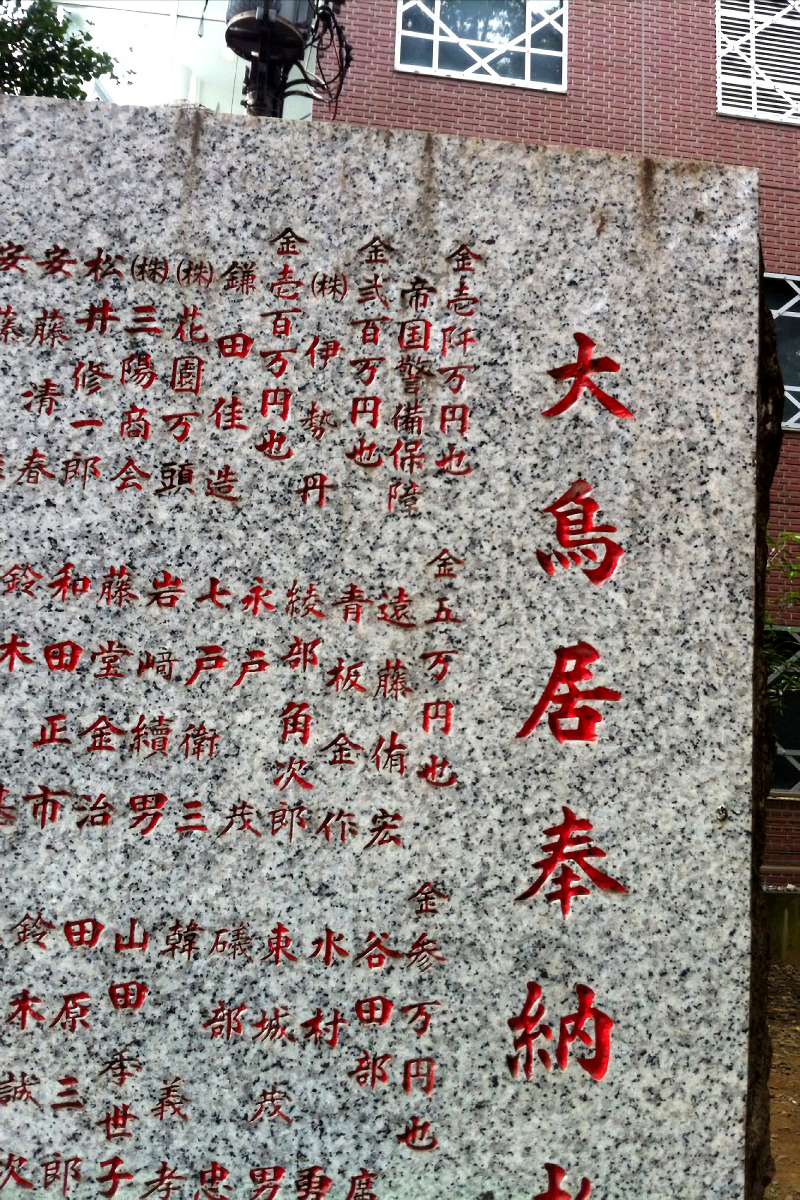 大鳥居奉納
金壱阡万円也
帝国警備保障
金弐百万円也
㈱伊勢丹
金壱百万円也
鎌田佳造
㈱花園万頭
㈱三陽商会
松井修一郎
安藤清春
安藤
金五万円也
遠藤侑宏
青板金作
綾部角次郎
永戸茂
七戸衛三
岩﨑續男
藤堂金治
和田正市
鈴木基
金参万円也
谷田部
水村勇
東城茂男
礒部忠
韓義孝
山田季世子
田原三郎
鈴木誠次